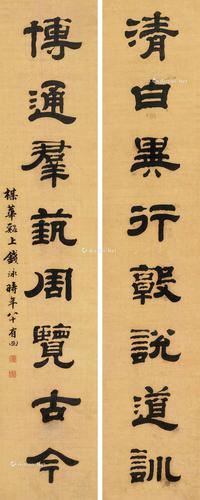 清白異行敦說道訓
博通羣蓺周覽古今
楳華谿上錢泳時年八十有四